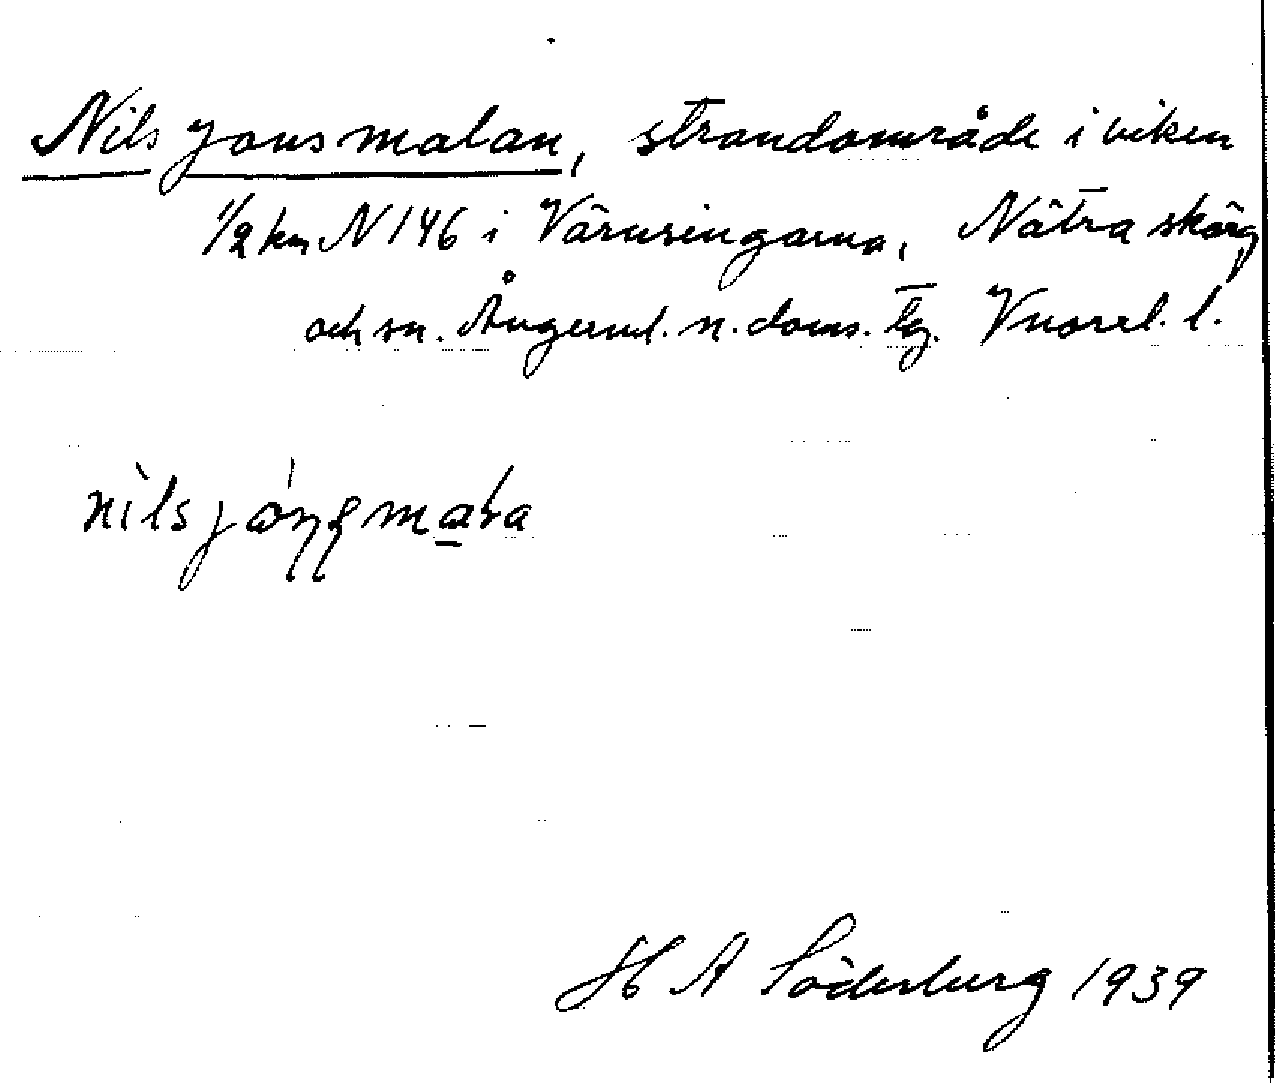 Nils Jonsmalan, strandområde i viken
1/2 km N 146 i Värnsingarna, Nätra skärg
och sn. Ångerml. n. doms. tg. Vnorrl. l.
nìlsjónsmala
H A Söderberg 1939